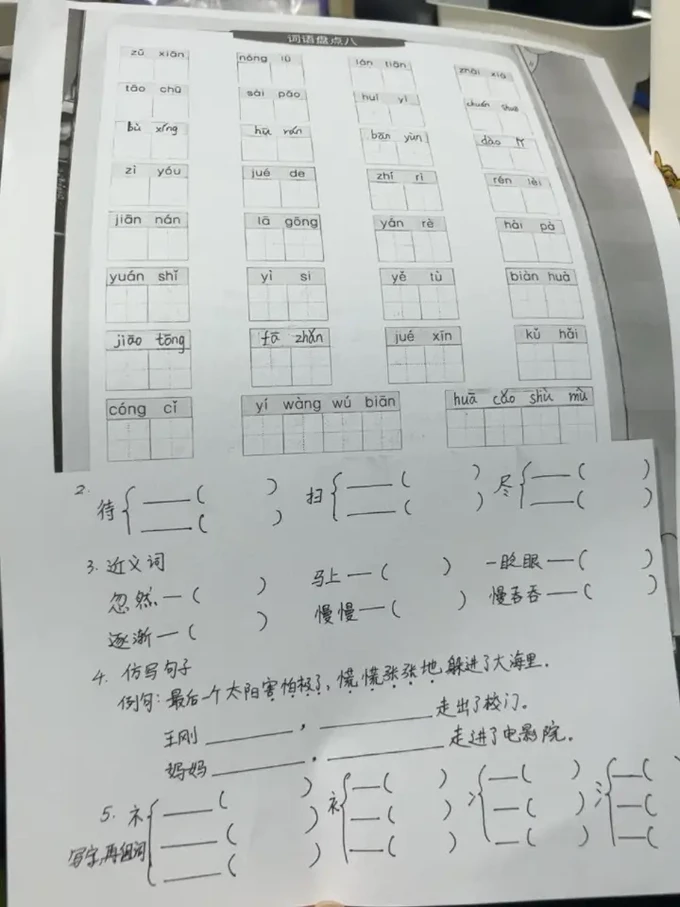 词语盘点八
zǔ xiān nóng lǜ lán tiān zhāi xià
tāo chū sài pǎo huí yì chuán shuō
bù xíng hū rán bān yùn dào lǐ
zì yóu jué de zhí rì rén lèi
jiān nán lā gōng yán rè hài pà
yuán shǐ yì si yě tù biàn huà
jiāo tōng fā zhǎn jué xīn kǔ hǎi
cóng cǐ yí wàng wú biān huā cǎo shù mù
2. 待 { —— ( ) 扫 { —— ( ) 尽 { —— ( )
—— ( ) —— ( ) —— ( )
3. 近义词
忽然—( ) 马上—( ) 一眨眼—( )
逐渐—( ) 慢慢—( ) 慢吞吞—( )
4. 仿写句子
例句：最后一个太阳害怕极了，慌慌张张地躲进了大海里。
王刚________，________走出了校门。
妈妈________，________走进了电影院。
5. 礻 { —— ( ) 衤 { —— ( ) 冫 { —— ( ) 氵 { —— ( )
写字,再组词 —— ( ) —— ( ) —— ( ) —— ( )
—— ( ) —— ( ) —— ( ) —— ( )